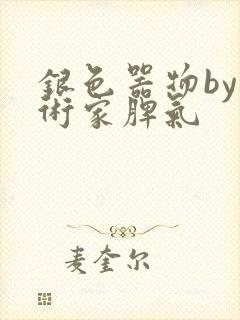 銀色器物by
術家脾氣
麦奎尔